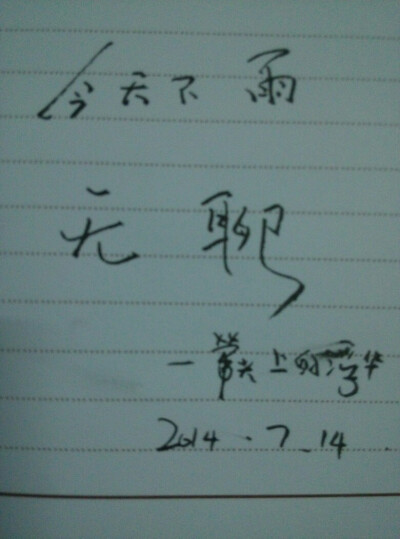 今天下雨
无聊
—笔尖上的浮华
2014.7.14